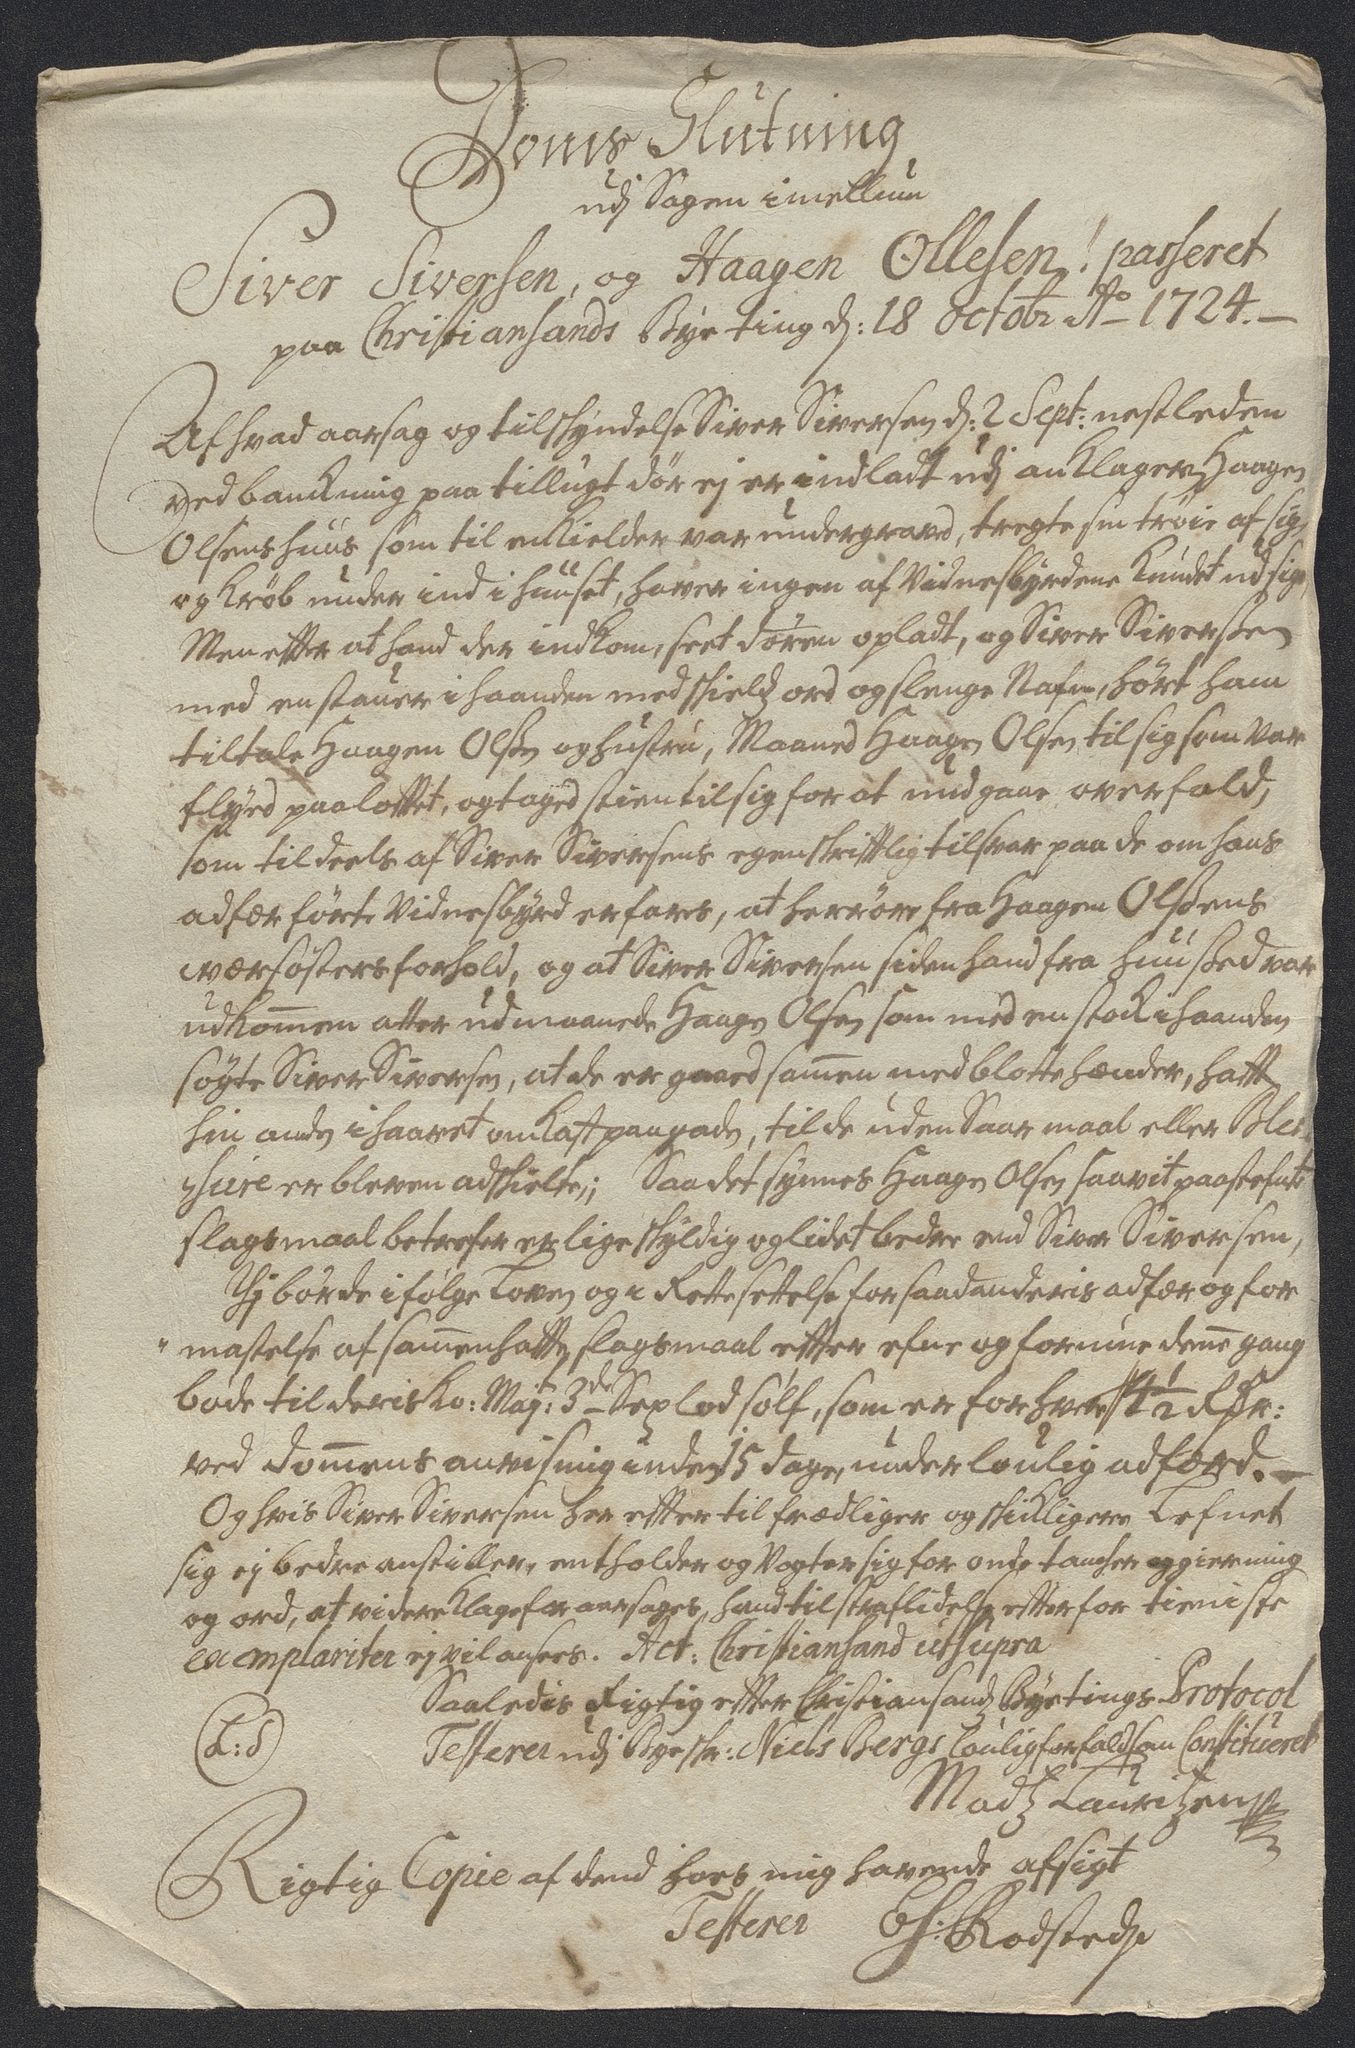 Doms Slutning
udj Sagen imellum
Siver Siversen, og Haagen Ollesen! passeret
paa Christiansands Bÿe ting d: 18 Octobr Ao 1724.
Af hvad aarsag og tilskÿndelse Siver Siversen d: 2 Sept: nestleden
ved banckning paa tillugt dör ej er indladt udj anklageren Haagen
Olsens huus som til en Kielder var undergraved, tregte sin tröie af sig,
og Kröb under ind i huuset, haver ingen af Vidnesbÿrdene Kundet udsige,
Men effter at hand der indkom, seet dören opladt, og Siver Siversen
med en staver i haanden med skields ord og slenge Nafne, hört ham
tiltale Haagen Olsen og hustru, Maaned Haagen Olsen til sig som var
flÿed paa lofftet, og taged stien til sig for at undgaae overfald,
som til deels af Siver Siversens egen skrifftlig tilsvar paa de om hans
adfær förte Vidnesbÿrd erfares, at herröre fra Haagen Olsens
værsösters forhold, og at Siver Siversen siden hand fra huused var
udkommen atter udmaanede Haagen Olsen som med en stock i haanden
sögte Siver Siversen, at de er gaaed sammen med blotte hænder, hafft
hin anden i haaret omkast paa gaden, til de uden Saar maal eller Ble
hure er bleven adskilte; Saa det sÿnnes Haagen Olsen saavit paastefnte
slagsmaal betrefer er lige skÿldig og lidet bedre end Siver Siversen,
Thj bör de i fölge Loven og i Rettesettelse for saadan deris adfær og for
mastelse af sammenhaffte slagsmaal effter efne og formue denne gang
bode til deris Ko: Majt: 3de Sex lod sölf, som er for hver 4½ Rdr:
ved dommens anvisning inden 15 dage, under loulig adfærd.
Og hvis Siver Siversen her effter til frædliger og skikkligere Lefnet
sig ej bedre anstiller, entholder og Vogter sig for onde tancker og gierning
og ord, at videre Klage foraarsages, hand til straf lidelse effter fortieniste
exemplariter ej vil ansees. Act: Christiansand ut supra
Saaledis Rigtig effter Christiansands Bÿetings Protocol
(L:S) Testerer udj Bÿeskr: Niels Bergs Loulig forfald som Constitueret
Madz Lauritzen
Rigtig Copie af dend hoes mig havende afsigt
Testerer Rodsted